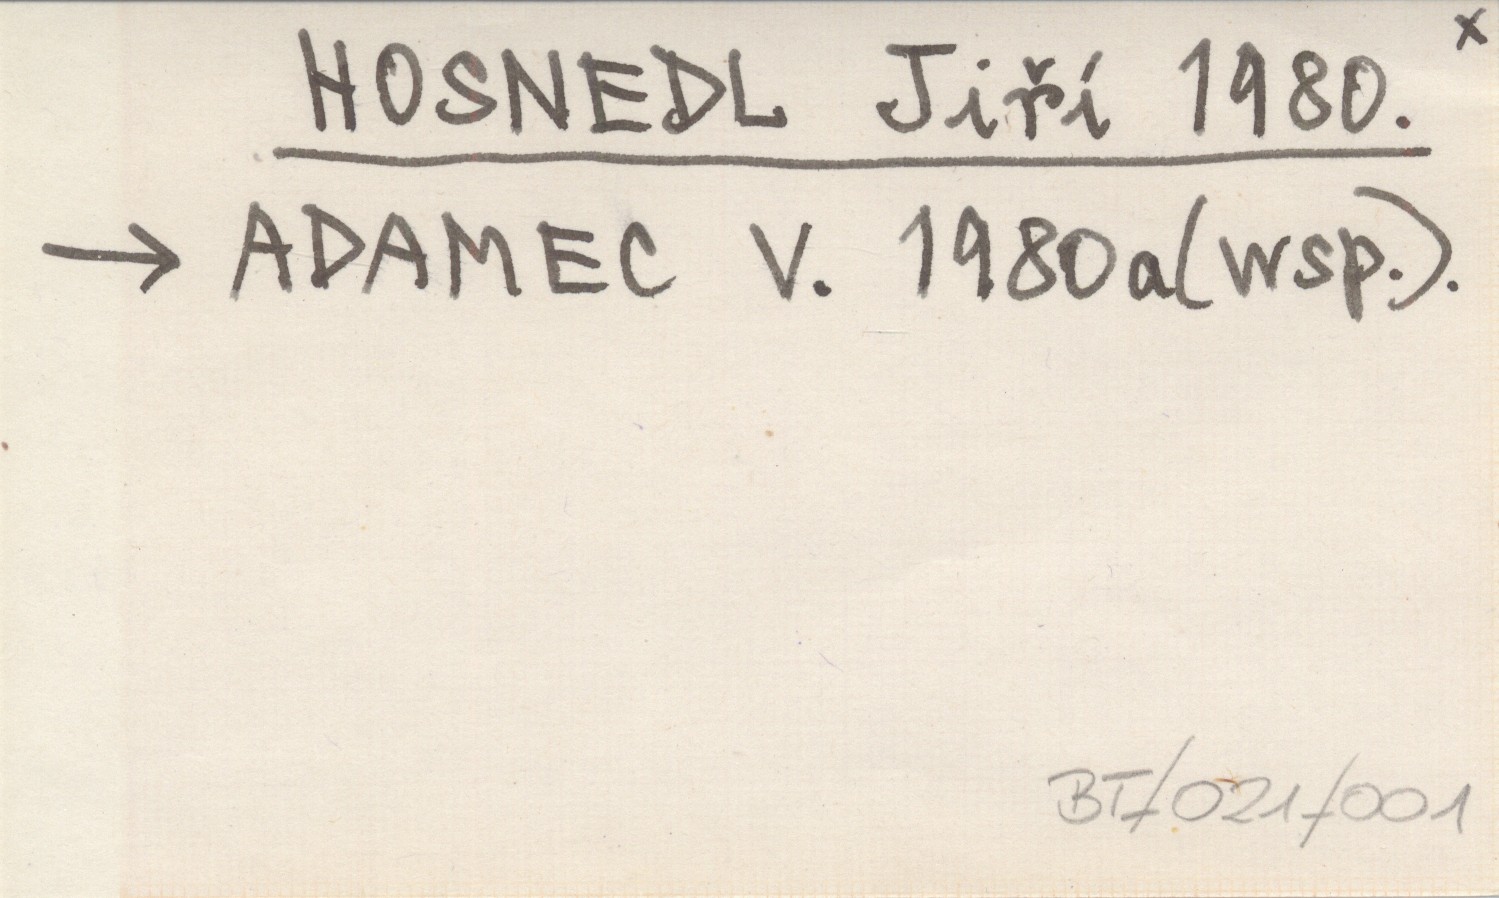 x
HOSNEDL Jiří 1980.
→ ADAMEC V. 1980a(wsp.).
BT/021/001